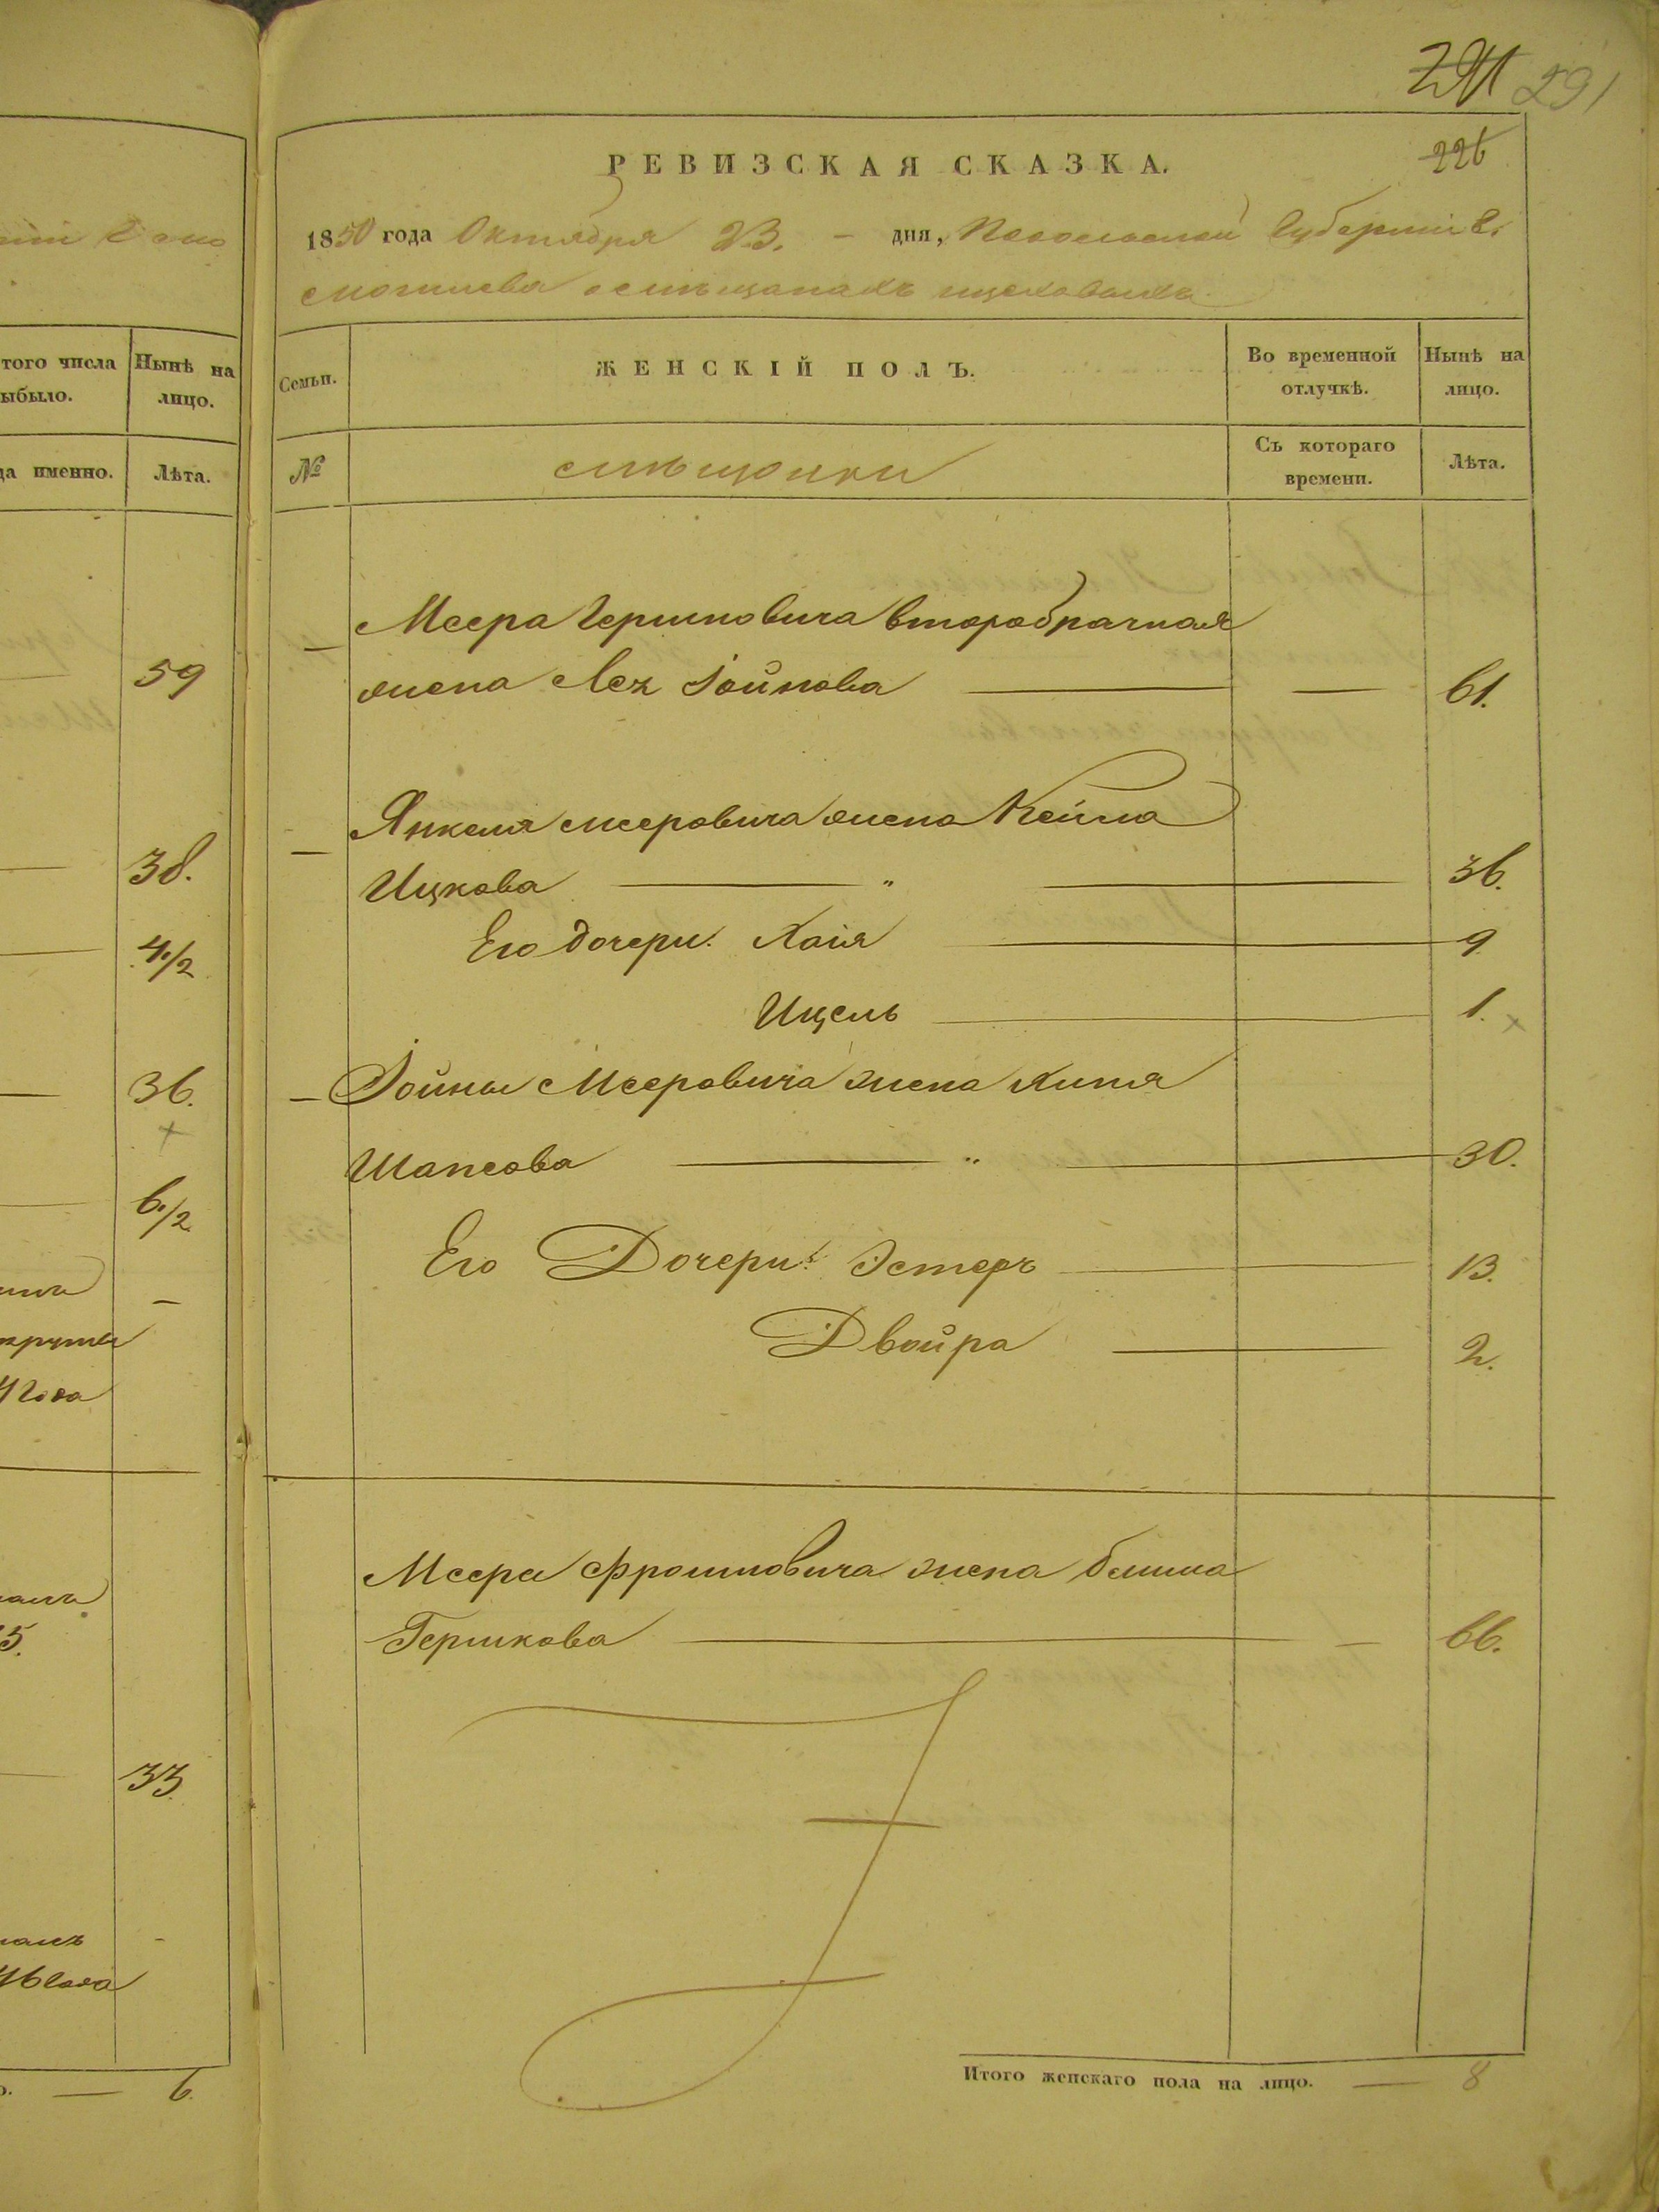 291
226
РЕВИЗСКАЯ СКАЗКА.
1850 года Октября 23. – дня, Подольской Губерніи Г.
Могилева о мѣщанахъ
того числа
ыбыло.
Нынѣ на
лицо.
Семьи.
ЖЕНСКІЙ ПОЛЪ.
Во временной
отлучкѣ.
Нынѣ на
лицо.
да именно.
Лѣта.
№
мѣщанки
Съ котораго
времени.
Лѣта.
Меера Гершковича второбрачная
жена Лея Іойнова — — 61.
59
Янкеля Мееровича жена Кейла
Ицкова — " — 36.
38.
Его дочери: Хаія — 9
4 1/2
Ицель — 1.
Іойны Мееровича жена Хитя
36.
Шапсова — " — 30.
6 1/2
Его Дочери: Эстеръ — 13.
Двойра — 2.
Меера Фроимовича жена Блима
Гершкова — — 66.
33.
Итого женскаго пола на лицо. — 8
о. — 6.